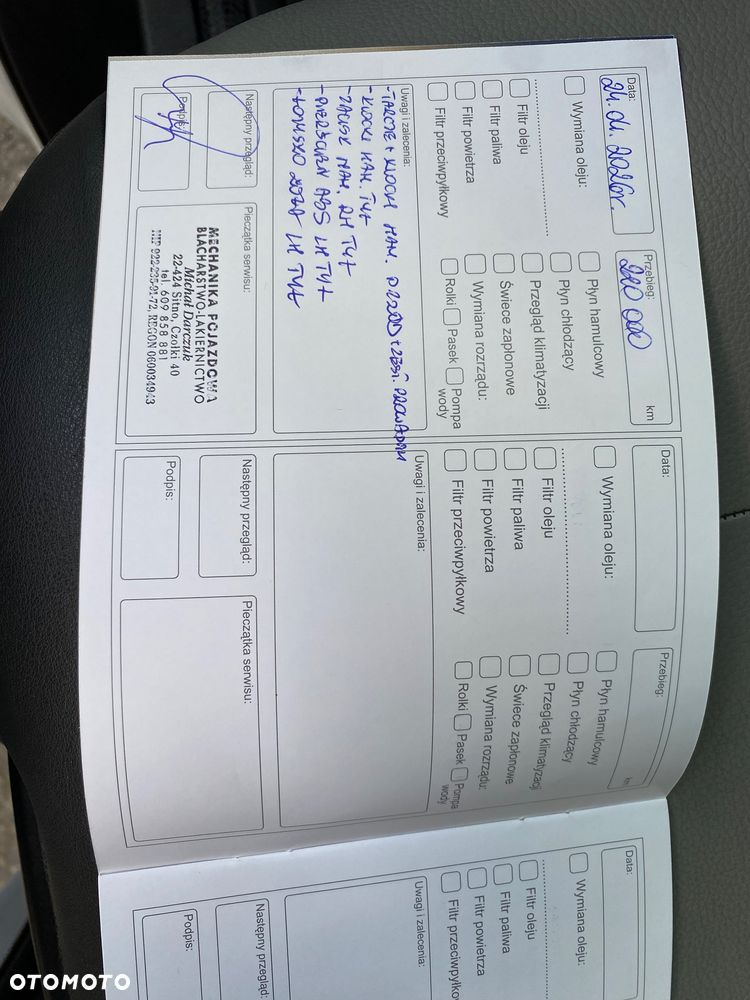 Data:
24.01.2026r.
Przebieg:
210 000
km
Wymiana oleju:
Płyn hamulcowy
Płyn chłodzący
Filtr oleju
Przegląd klimatyzacji
Filtr paliwa
Świece zapłonowe
Filtr powietrza
Wymiana rozrządu:
Filtr przeciwpyłkowy
Rolki
Pasek
Pompa
wody
Uwagi i zalecenia:
-TARCZE + KLOCKI HAM. PRZÓD +
-KLOCKI HAM. TYŁ
-ZACISK HAM. RH TYŁ
-PIERŚCIEŃ ABS LH TYŁ
-ŁOŻYSKO KOŁA LH TYŁ
Następny przegląd:
Podpis:
Pieczątka serwisu:
MECHANIKA POJAZDOWA
BLACHARSTWO-LAKIERNICTWO
Michał Darczuk
22-424 Sitno, Czołki 40
tel. 609 858 881
NIP 922-235-91-72, REGON 060034943
Data:
Przebieg:
Wymiana oleju:
Płyn hamulcowy
Płyn chłodzący
Filtr oleju
Przegląd klimatyzacji
Filtr paliwa
Świece zapłonowe
Filtr powietrza
Wymiana rozrządu:
Filtr przeciwpyłkowy
Rolki
Pasek
Pompa
wody
Uwagi i zalecenia:
Następny przegląd:
Podpis:
Pieczątka serwisu:
Data:
Wymiana oleju:
Filtr oleju
Filtr paliwa
Filtr powietrza
Filtr przeciwpyłkow
Uwagi i zalecenia:
Następny przegląd:
Podpis:
OTOMOTO